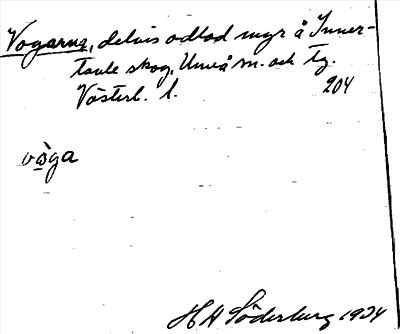 Vogarna, delvis odlad myr å Inner-
tavle skog, Umeå sn. och tg.
Västerb. l. 204
våga
H A Söderberg 1934